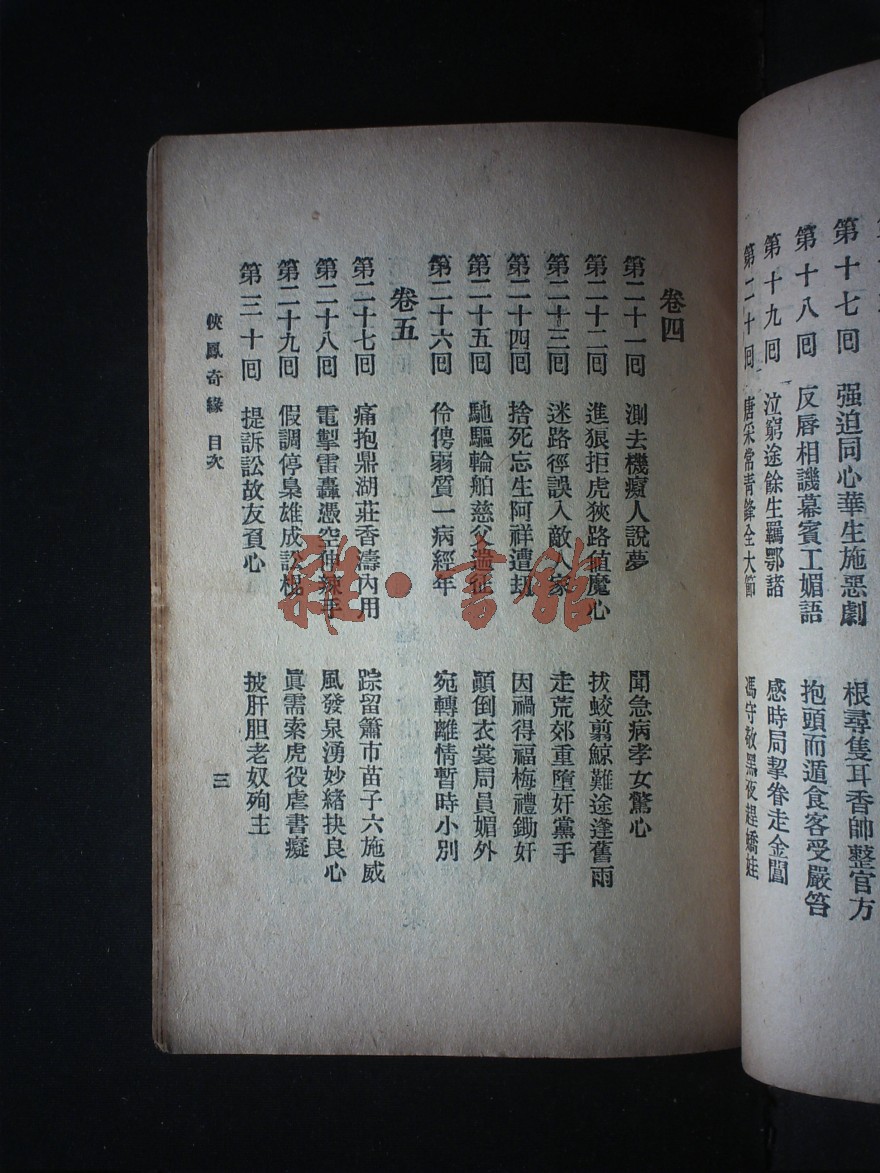 第十七回 强迫同心華生施惡劇 根尋隻耳香帥整官方
第十八回 反唇相譏幕賓工媚語 抱頭而遁食客受嚴笞
第十九回 泣窮途餘生羈鄂諸 感時局挈眷走金閶
第二十回 唐采常青鋒全大節 馮守敬黑夜趕嬌娃
卷四
第二十一回 測去機癡人說夢 聞急病孝女驚心
第二十二回 進狼拒虎狹路值魔心 拔蛟翦鯨難途逢舊雨
第二十三回 迷路徑誤入敵人家 走荒郊重墮奸黨手
第二十四回 捨死忘生阿祥遭刼 因禍得福梅禮鋤奸
第二十五回 馳驅輪舶慈父遄征 顚倒衣裳局員媚外
第二十六回 伶俜弱質一病經年 宛轉離情暫時小別
卷五
第二十七回 痛抱鼎湖莊香濤內用 踪留簫市苗子六施威
第二十八回 電掣雷轟憑空伸辣手 風發泉湧妙緒抉良心
第二十九回 假調停梟雄成訟棍 眞需索虎役虐書癡
第三十回 提訴訟故友負心 披肝胆老奴殉主
俠鳳奇緣 目次
三
雜·書館